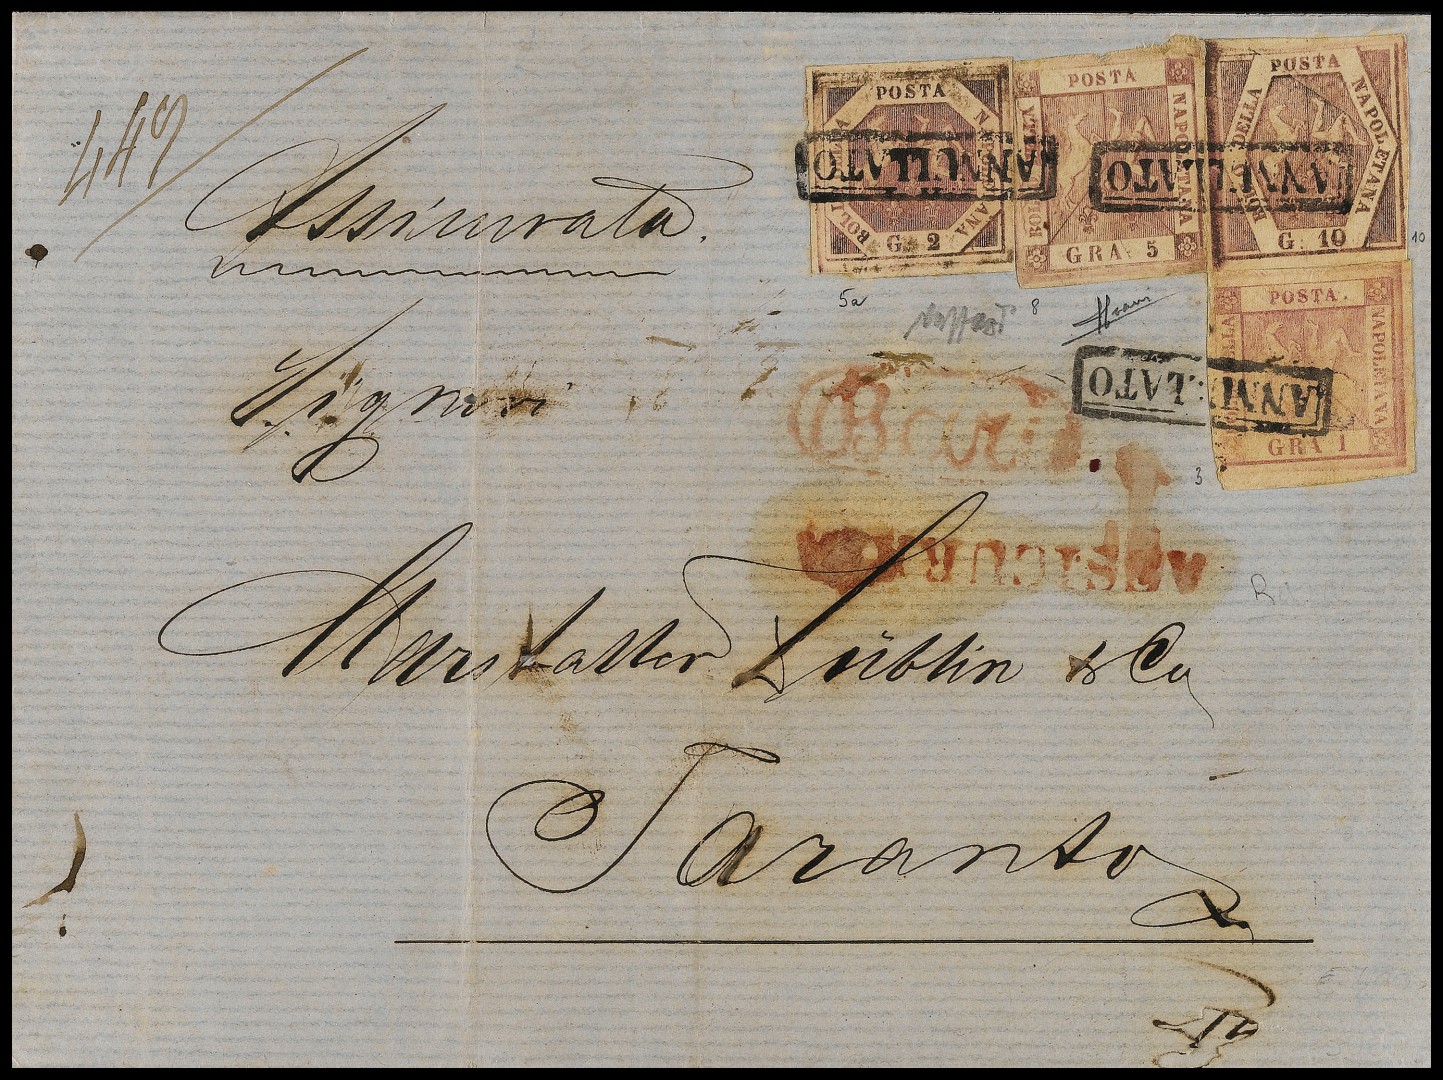 449
Assicurata.
POSTA NAPOLETANA
BOLLO DELLA
G. 2
ANNULLATO
POSTA NAPOLETANA
BOLLO DELLA
GRA 5
POSTA NAPOLETANA
BOLLO DELLA
G. 10
ANNULLATO
10
5a
8
POSTA NAPOLETANA
DELLA
GRA 1
ANNULLATO
3
Signori
Bari
ASSICURATA
Marstaller Lüblin & Co
Taranto